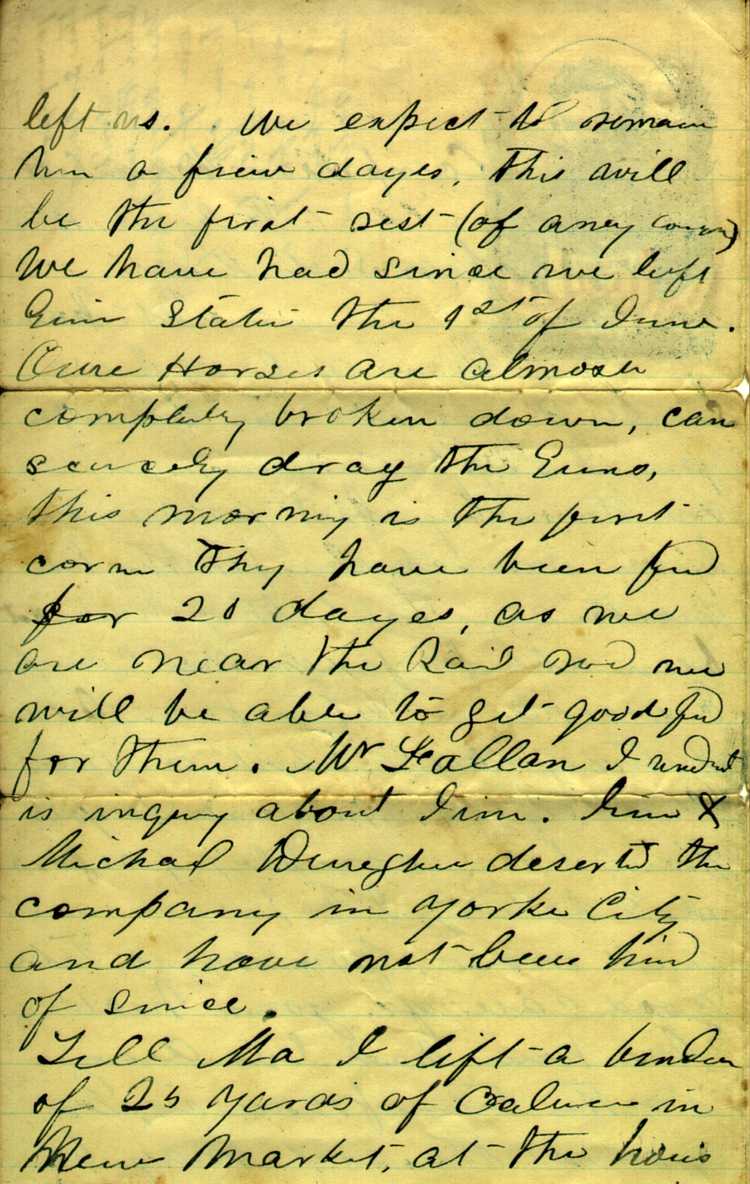 left us. We expect to remain
hear a fiew dayes, this will
be the first rest (of aney
We have had since we left
the 1st of June.
Oure Horses are almose
completely broken down, can
scarcely drag the Guns,
this morning is the first
corn they have been fed
for 20 dayes, as we
are near the Rail rod we
will be able to get good fed
for them. Mr Fallan I
is inquiry about Jim. Jim &
Michael deserted the
company in Yorke City
and have not been hird
of since.
Tell Ma I lift a
of 25 yards of in
New Market, at the hous